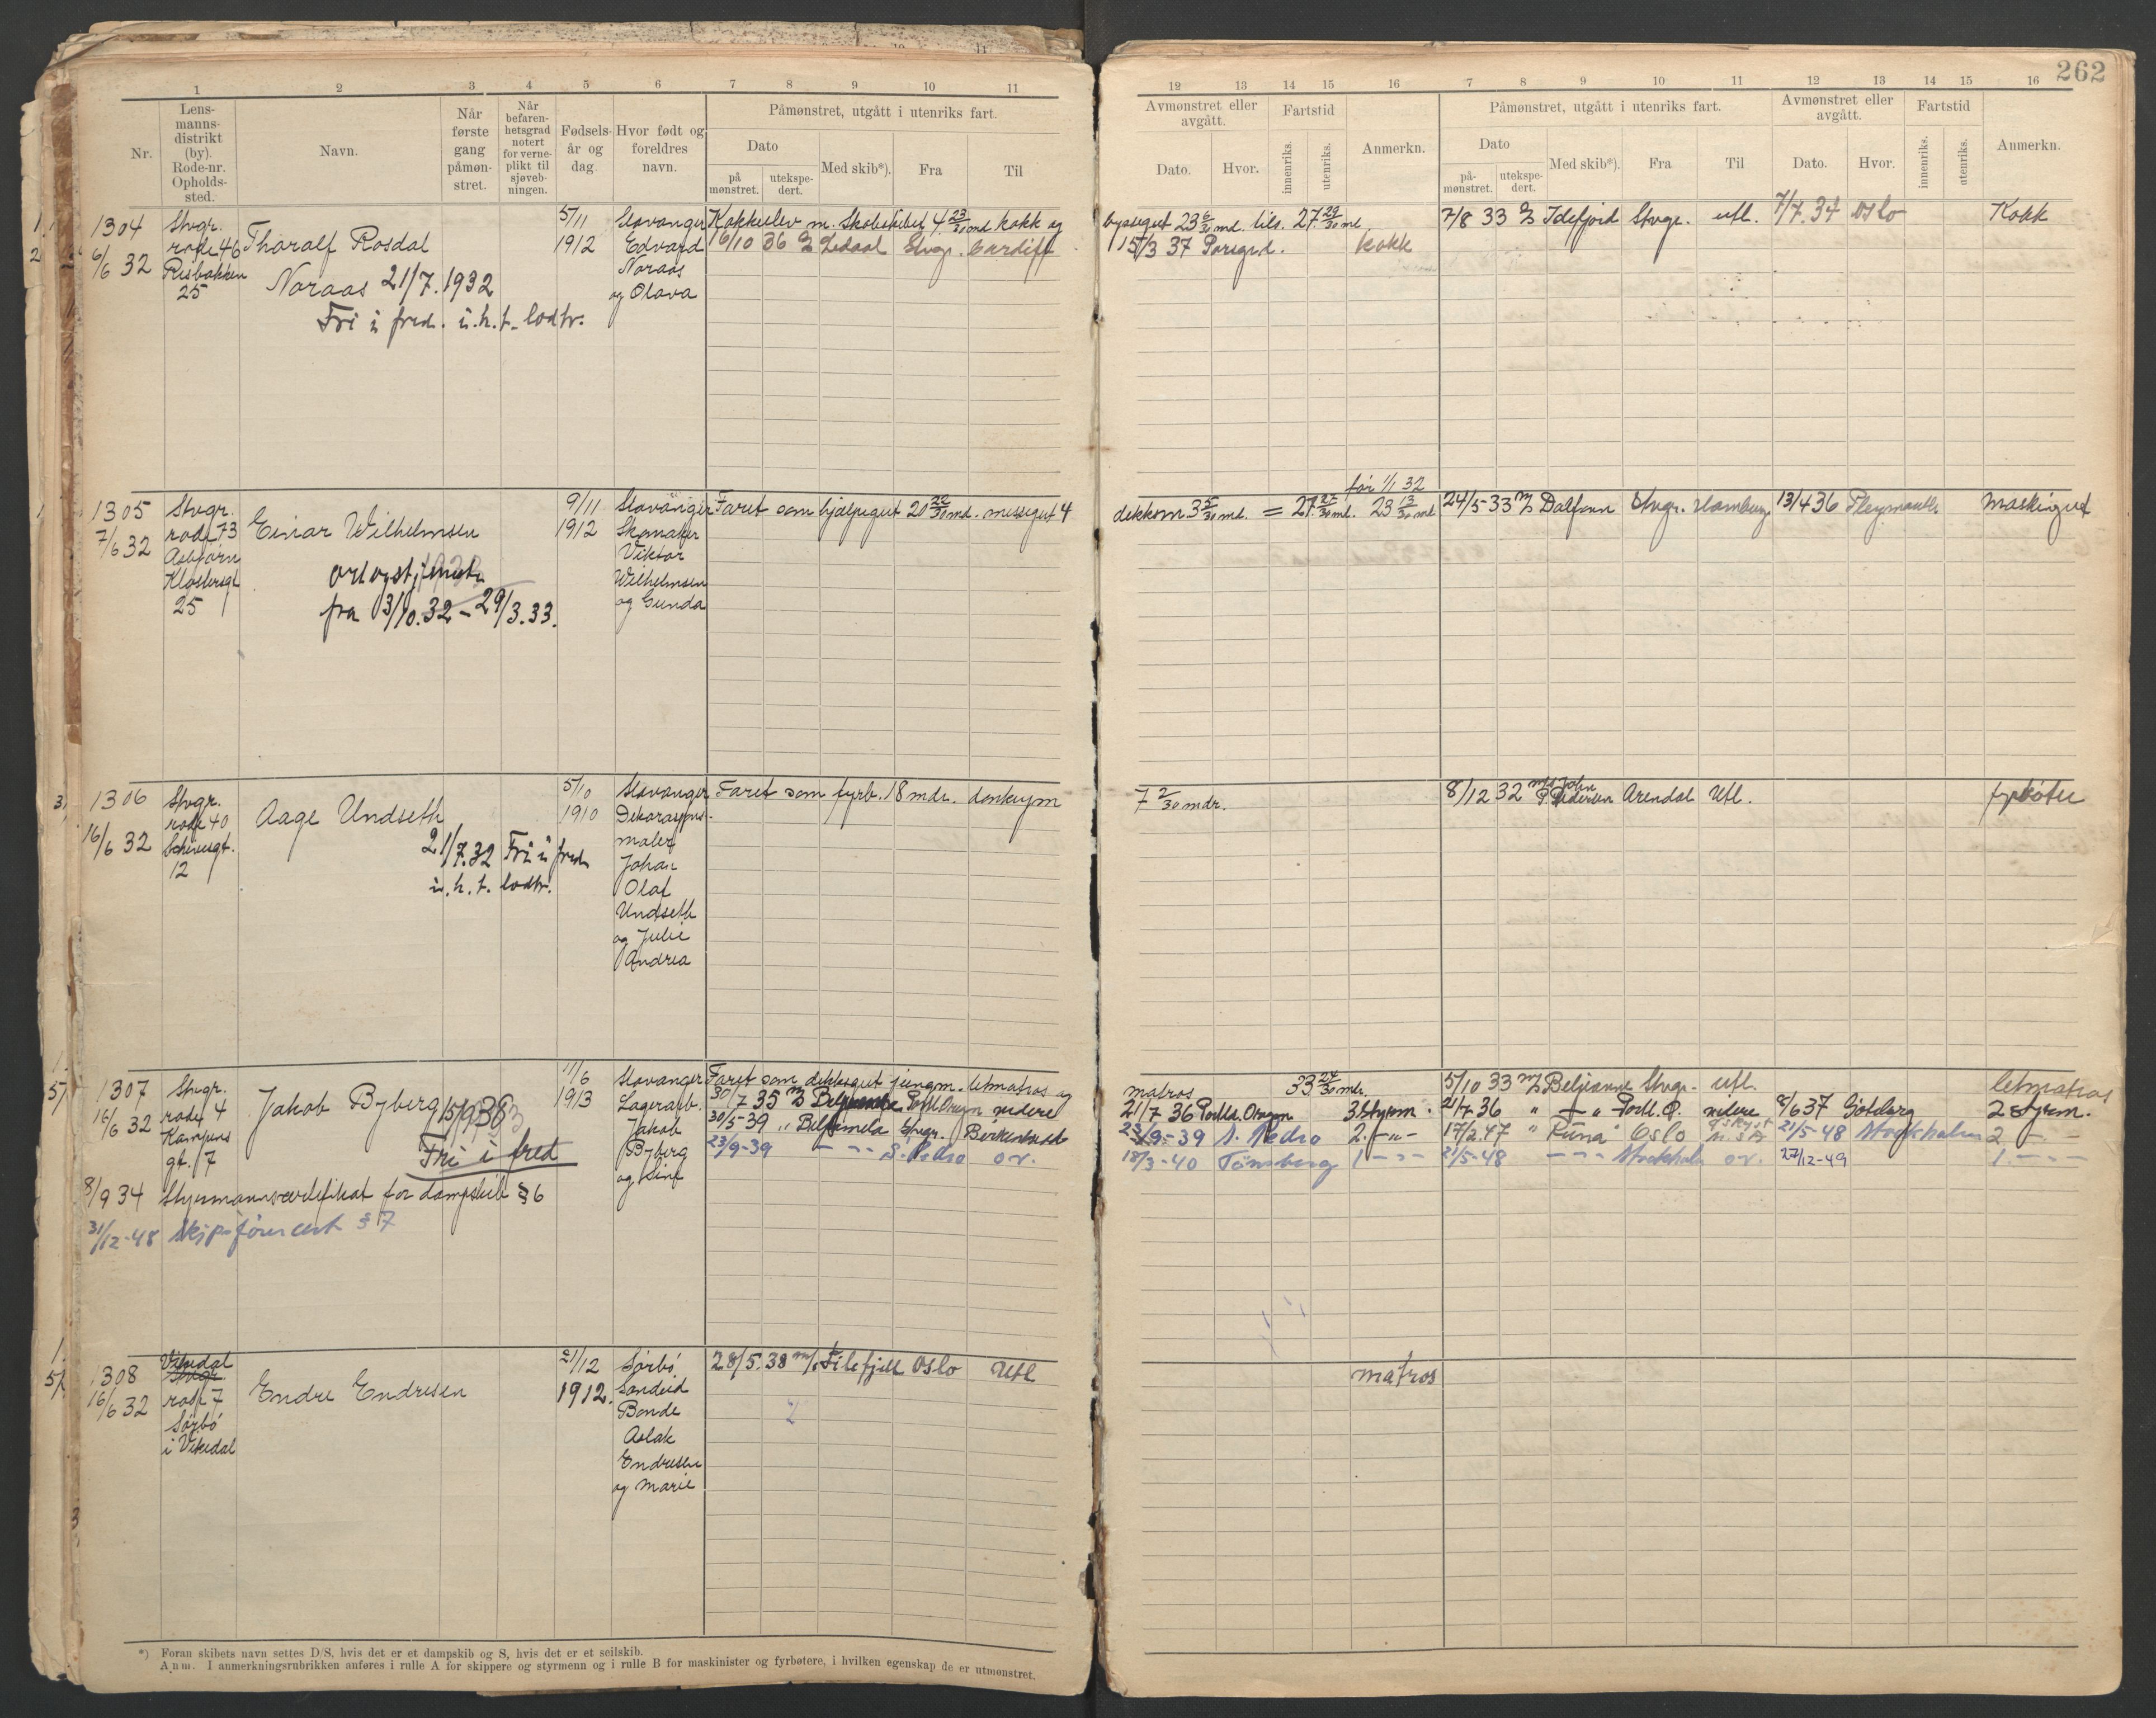 262
1 2 3 4 5 6 7 8 9 10 11
12 13 14 15 16 7 8 9 10 11 12 13 14 15 16
Nr.
Lens-
manns-
distrikt
(by).
Rode-nr.
Opholds-
sted.
Navn.
Når
første
gang
påmøn-
stret.
Når
befaren-
hetsgrad
notert
for verne-
plikt til
sjøveb-
ningen.
Fødsels-
år og
dag
Hvor født og
foreldres
navn.
Påmønstret, utgått i utenriks fart.
Dato
på
mønstret.
utekspe-
dert.
Med skib*).
Fra
Til
Avmønstret eller
avgått.
Dato.
Hvor.
Fartstid
innenriks.
utenriks.
Anmerkn.
Påmønstret, utgått i utenriks fart.
Dato
på-
mønstret.
utekspe-
dert.
Med skib*).
Fra
Til
Avmønstret eller
avgått.
Dato.
Hvor.
Fartstid
innenriks.
utenriks.
Anmerkn.
1304
6/6 32
Stvgr.
rode 46
Risbakken
25
Tharalf Rosdal
Noraas 21/7.1932
Fri i fred. u.h.t. lodtr.
5/11
1912
Stavanger
Edvard
Noraas
og Olava
Kokkelev m. Skoleskibet 4 23/30 md kokk og
16/10 36 Ledaal Stvgr. Cardiff
byssegut 23 6/30 md. tils. 27 29/30 md.
15/3 37 Porsgrd. kokk
7/8 33 Idefjord Stvgr. utl. 7/7.34 Oslo Kokk
1305
7/6 32
Stvgr.
rode 73
Asbjørn
Klostersgt
25
Einar Wilhelmsen
fra 3/10.32 - 29/3.33.
9/11
1912
Stavanger
Skomaker
Viktor
Wilhelmsen
og Gunda
Faret som hjelpegut 20 22/30 md. messegut 4
før 1/1 32
dekksm 3 5/30 md. = 27 25/30 md. 23 13/30 md
24/5-33 Dalfonn Stvgr. Hamburg 13/4 36
1306
16/6 32
Stvgr.
rode 40
12
Aage Undseth
21/7.32 Fri i fred
u.h.t. lodtr.
5/10
1910
Stavanger
maler
Johan
Olaf
Undseth
og Julie
Andrea
Faret som fyrb. 18 mdr. donkeym
7 2/30 mdr.
8/12 32 m/s John P. Pedersen Arendal Utl. fyrbøter
1307
16/6 32
Stvgr.
rode 4
Kampens
gt. 7
Jakob Byberg
Fri i fred
8/9 34 Styrmannscertifikat for dampskib § 6
31/12-48 Skipsførercert § 7
11/6
1913
Stavanger
Lagerarb.
Jakob
Byberg
Faret som dekksgut jungm. letmatros og
30/7 35 Portl. Oregon videre
30/5-39 " Belpamela Stvgr. Birkenhead
23/9-39 - " - S. Pedro ov.
matros 33 24/30 mdr.
21/7 36 Portld. Oregon 3. Styrm.
23/9-39 S. Pedro 2. - " -
18/3-40 Tønsberg 1 - " -
5/10 33 Beljeanne Stvgr. utl. letmatros
21/7 36 " - " Portl. O. videre 8/6 37 Göteborg 2 styrm.
17/2.47 " Runa Oslo 21/5-48 Stockholm 2. - " -
21/5-48 - " - Stockholm ov. 27/12-49 1. - " -
1308
16/6 32
Vikedal
Stvgr.
rode 7
Sørbø
i Vikedal
Endre Endresen
21/12
1912.
Sørbø
Sandeid
Bonde
Aslak
Endresen
og Marie
28/5.38 m/s Filefjell Oslo Utl
matros
*) Foran skibets navn settes D/S, hvis det er et dampskib og S, hvis det er et seilskib.
Anm. I anmerkningsrubrikken anføres i rulle A for skippere og styrmenn og i rulle B for maskinister og fyrbøtere, i hvilken egenskap de er utmønstret.